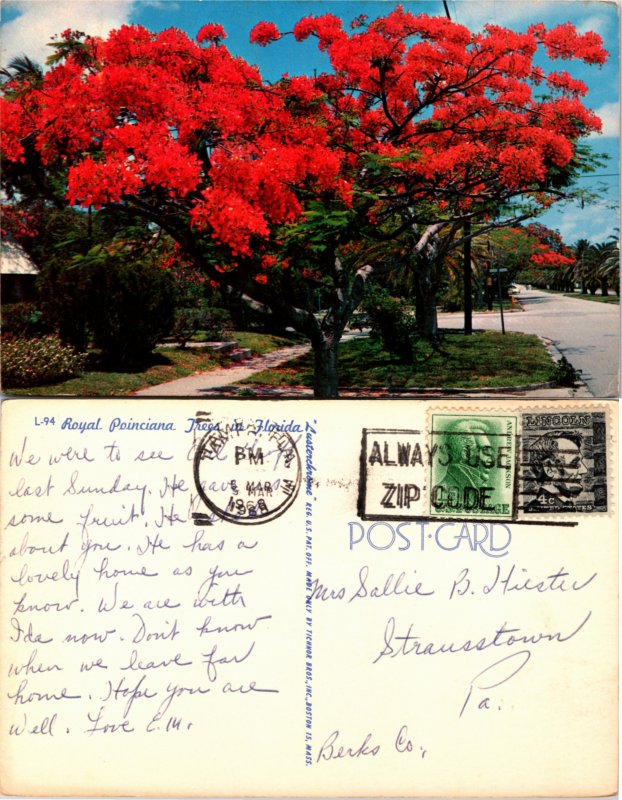 L-94 Royal Poinciana Trees in Florida
We were to see
last Sunday. He gave us
some fruit. He
about you. He has a
lovely home as you
know. We are with
Ida now. Don't know
when we leave for
home. Hope you are
Well. Love E.M.
"Lusterchrome" REG. U.S. PAT. OFF. MADE ONLY BY TICHNOR BROS., INC., BOSTON 15, MASS.
PM
MAR
ALWAYS USE
ZIP CODE
ANDREW JACKSON
LINCOLN
4c
POST-CARD
Mrs Sallie B. Hiester
Strausstown
Pa.
Berks Co.